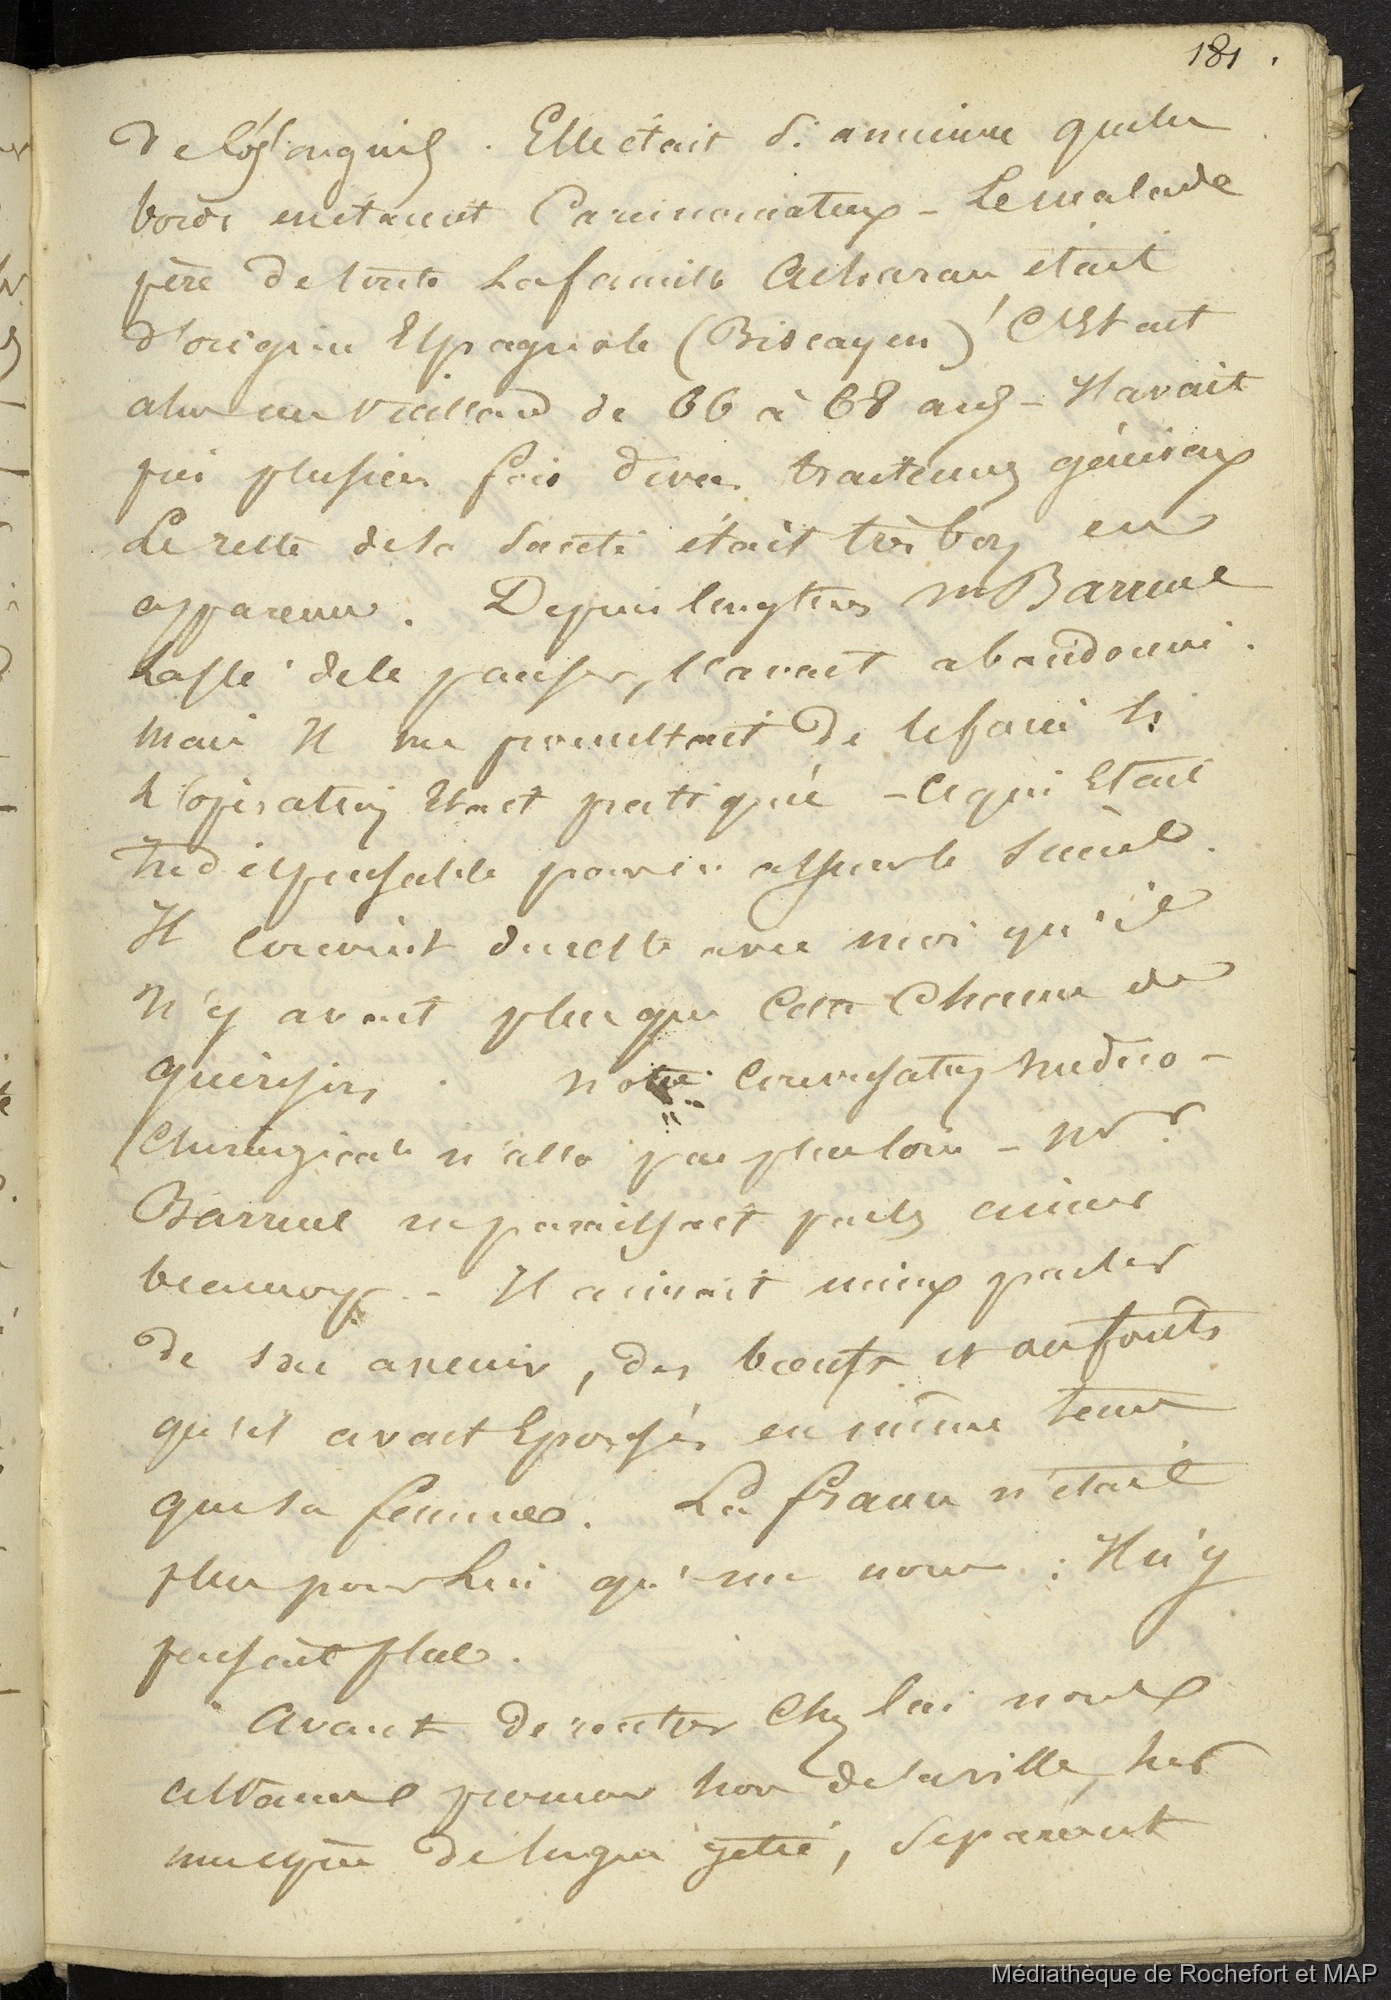 181.
de l'os onguis. Elle était si ancienne que les
bords en étaient Carcinomateux - Le malade
père de toute La famille Acharan était
d'origine Espagnole (Biscayen) C'était
alors un vieillard de 66 à 68 ans - Il avait
pris plusieurs fois divers traitemens généraux
Le reste de sa Santé était très bon en
apparence. Depuis longtems Mr Barrene
Lassé de le panser, l'avait abandonné.
mais Il me promettait de le faire Si
L'opération Etait pratiquée - Ce qui Etait
Indispensable pour en assurer le Succès.
Il convint du reste avec moi qu'il
n'y avait plus que Cette Chance de
guérison. notre Conversation médico-
Chirurgicale n'alla pas plus loin - Mr
Barrene ne paraissait pas les aimer
beaucoup - Il aimait mieux parler
de son avenir, des bœufs et
qu'il avait Epousés en même tems
que sa femme. La france n'était
plus pour Lui qu'un nom : Il n'y
pensait plus.
Avant de rentrer Chez lui nous
allames promener hors de la ville, Les
, Séparèrent